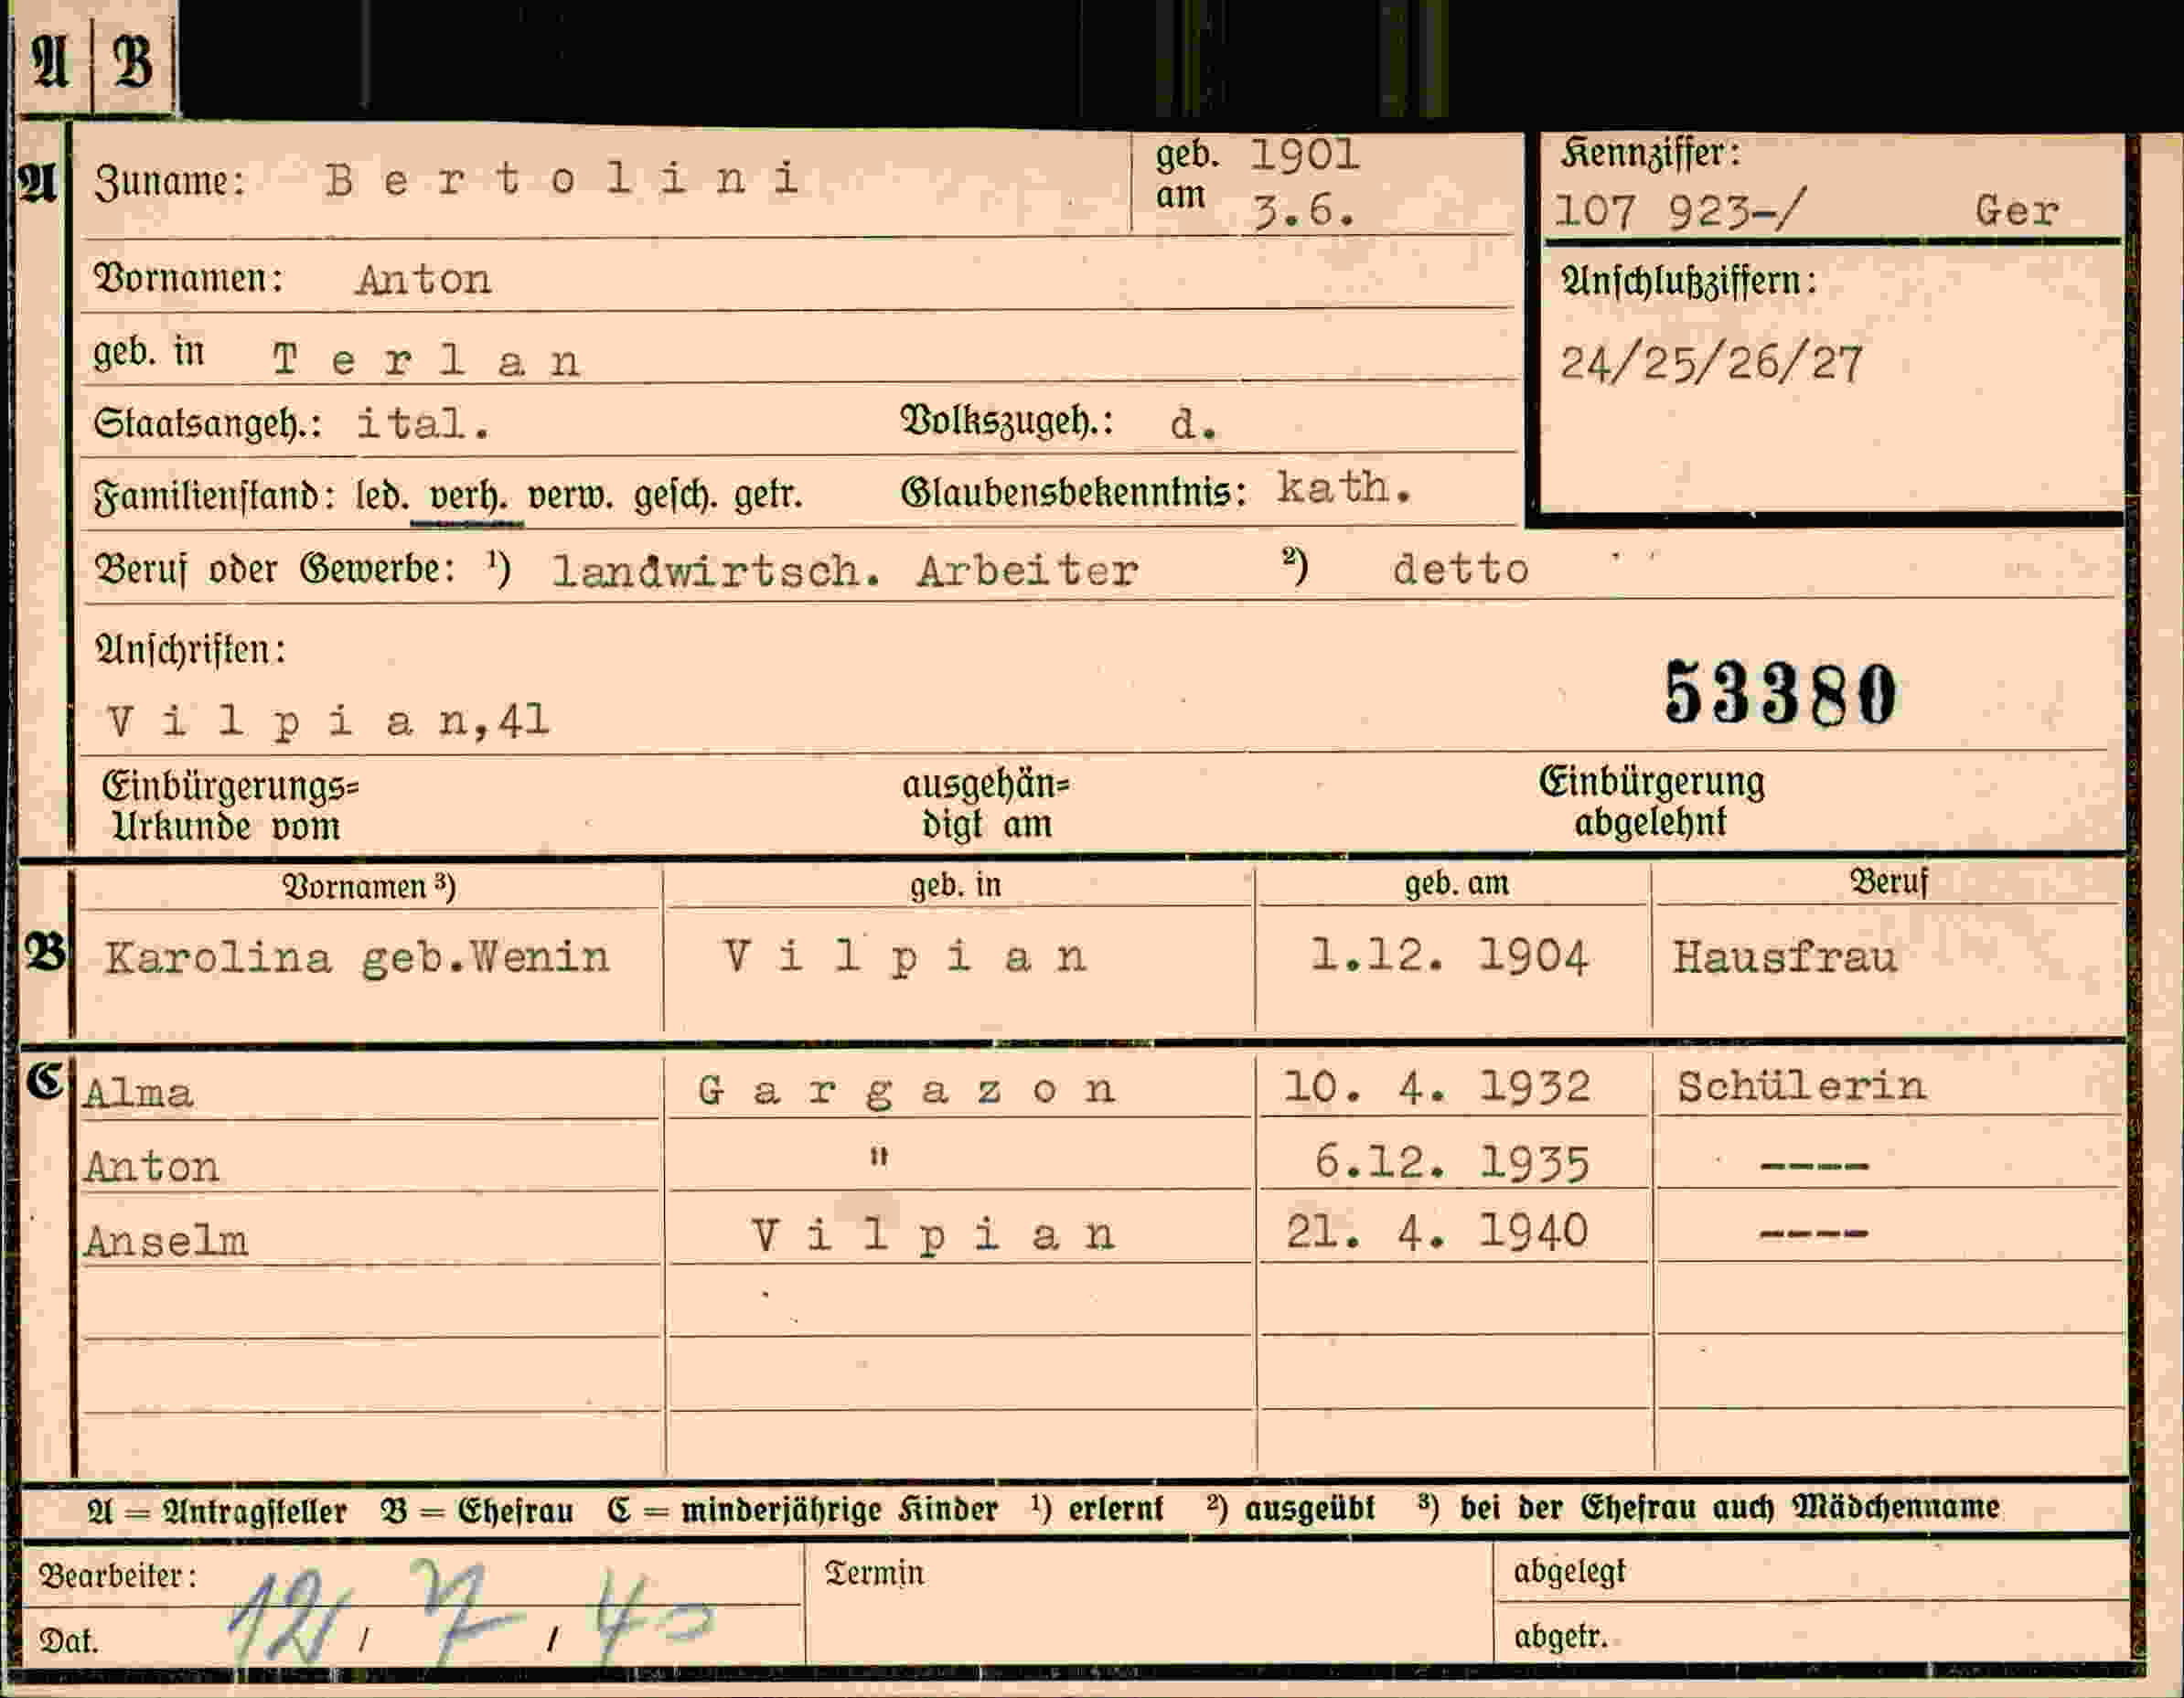 A B
A Zuname: Bertolini geb. am 1901 3.6. Kennziffer:
107 923-/ Ger
Vornamen: Anton Anschlußziffern:
geb. in Terlan 24/25/26/27
Staatsangeh.: ital. Volkszugeh.: d.
Familienstand: led. verh. verw. gesch. getr. Glaubensbekenntnis: kath.
Beruf oder Gewerbe: ¹) landwirtsch. Arbeiter ²) detto
Anschriften:
53380
Vilpian,41
Einbürgerungs= ausgehän= Einbürgerung
Urkunde vom digt am abgelehnt
Vornamen ³) geb. in geb. am Beruf
B Karolina geb.Wenin Vilpian 1.12. 1904 Hausfrau
C Alma Gargazon 10. 4. 1932 Schülerin
Anton " 6.12. 1935 ----
Anselm Vilpian 21. 4. 1940 ----
A = Antragsteller B = Ehefrau C = minderjährige Kinder ¹) erlernt ²) ausgeübt ³) bei der Ehefrau auch Mädchenname
Bearbeiter: Termin abgelegt
Dat. 12 / 7 / 40 abgetr.